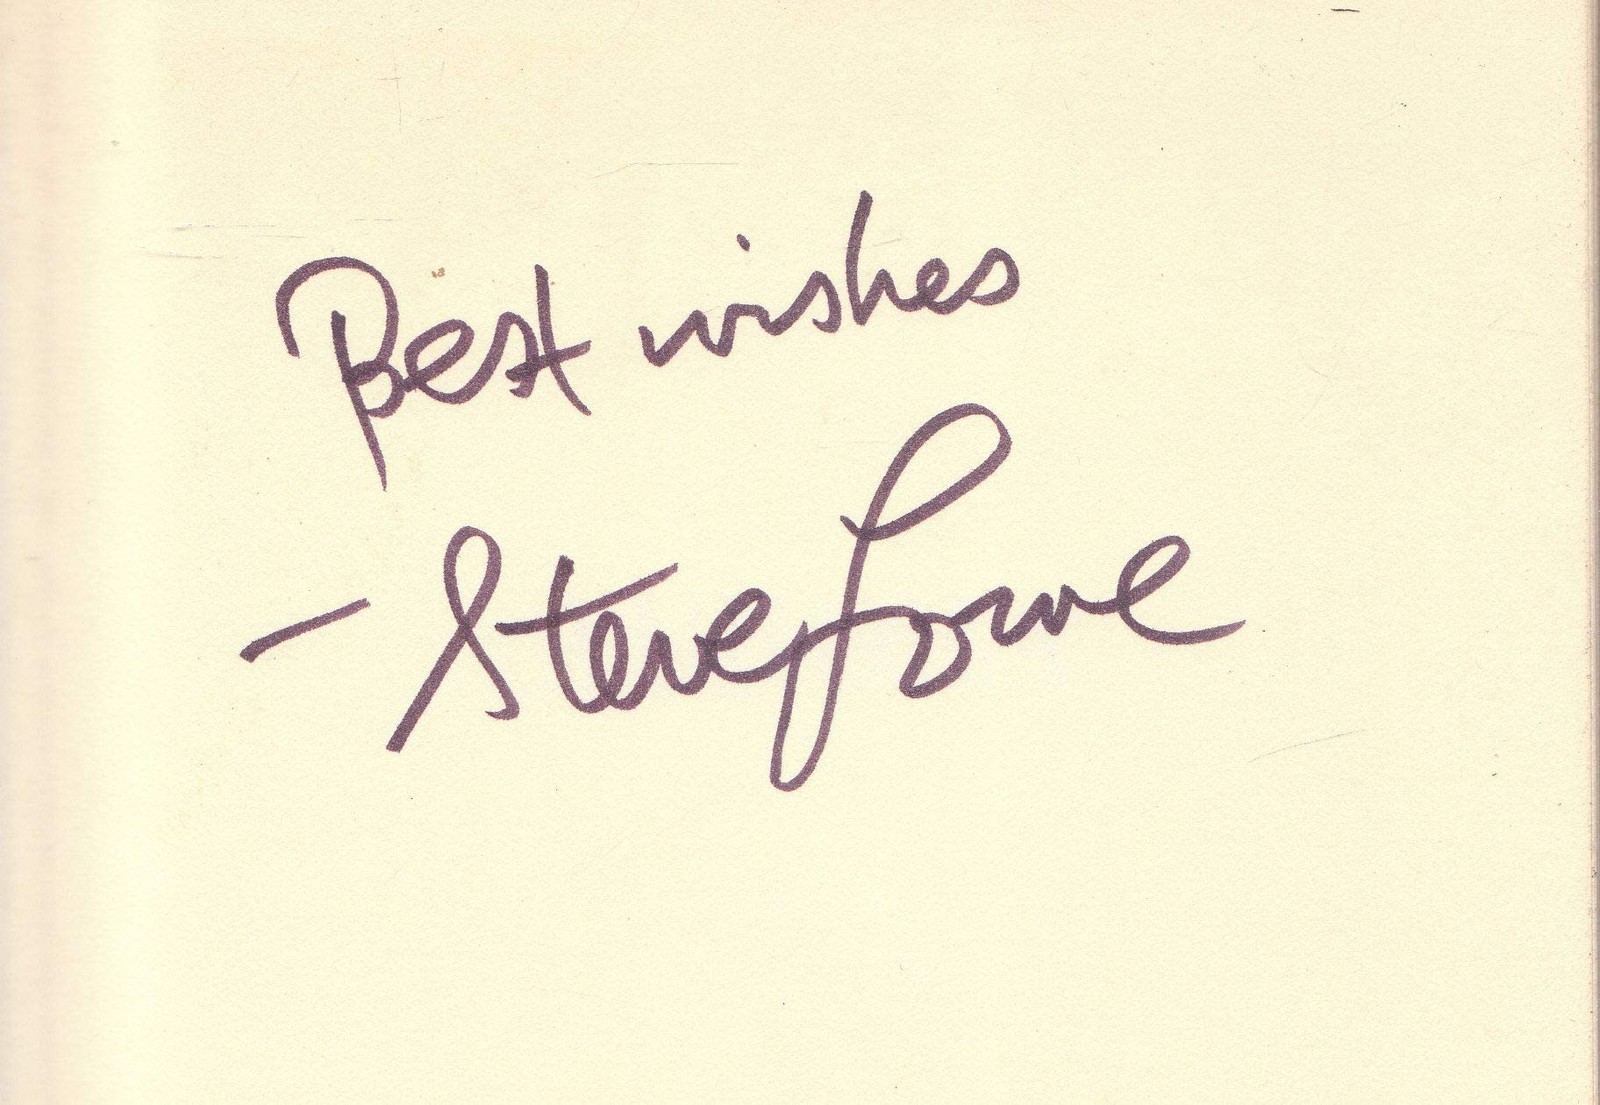 Best wishes
- Steve Lowe